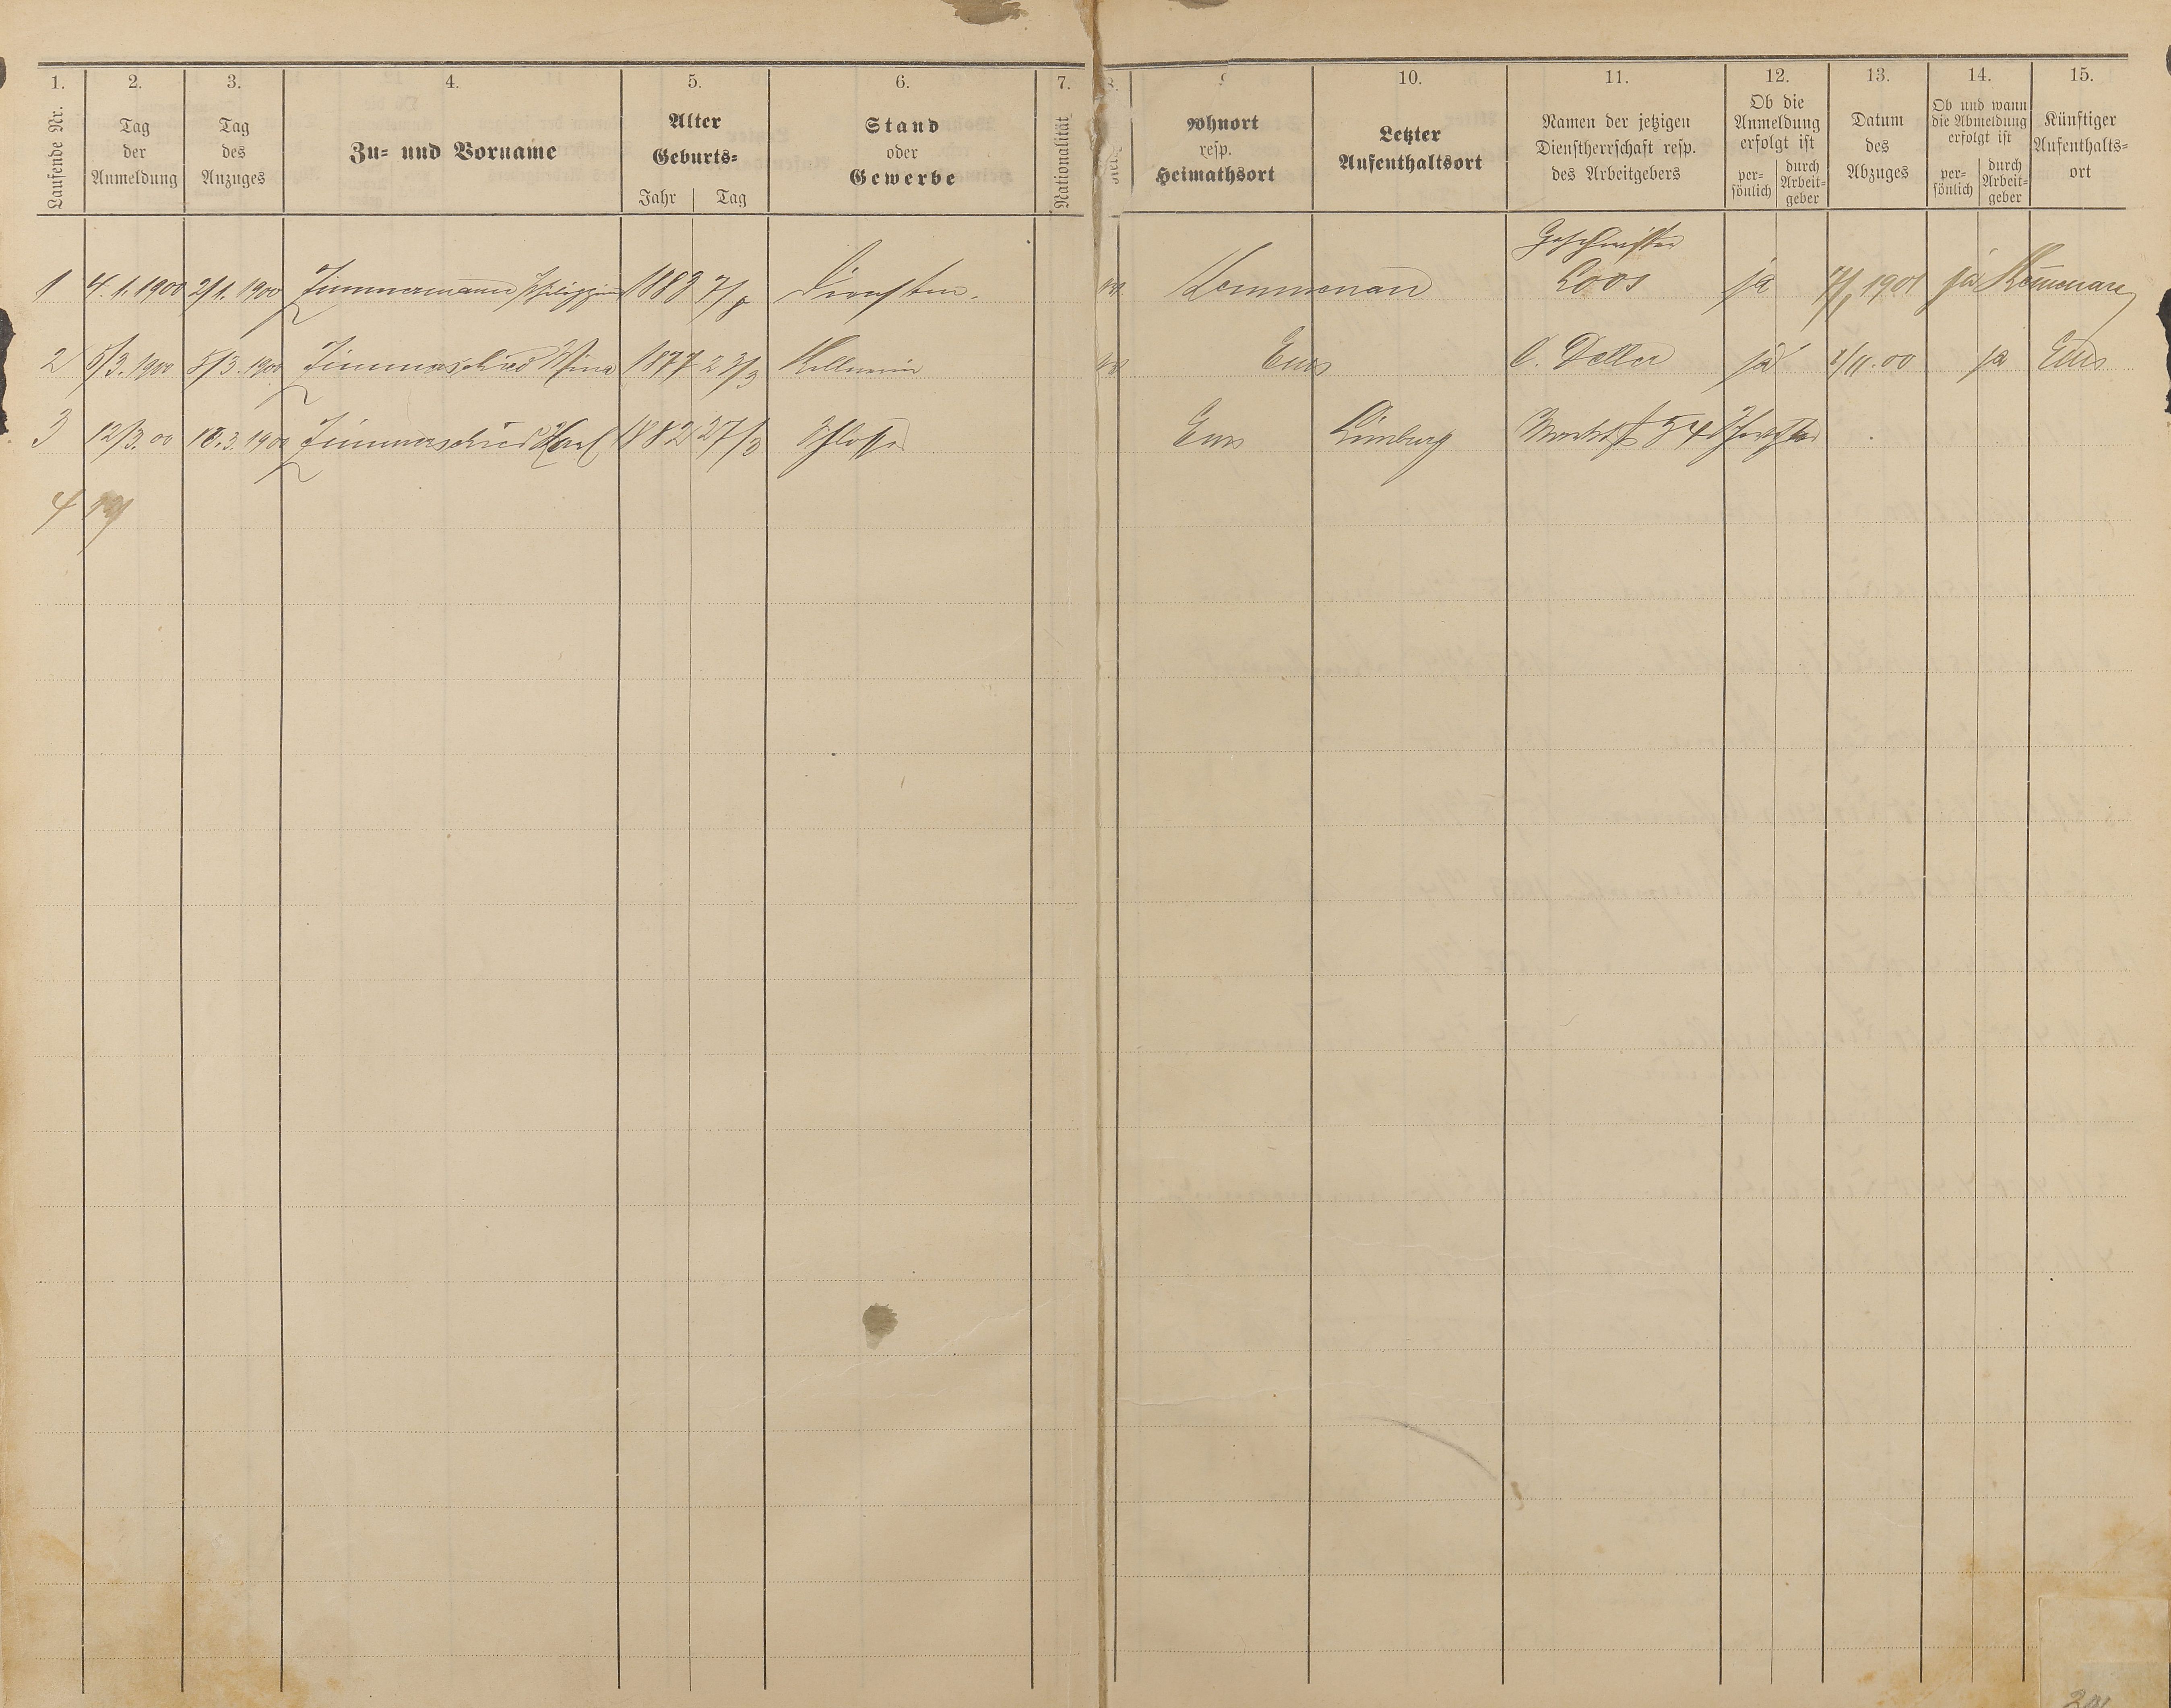 1. 2. 3. 4. 5. 6. 7. 10. 11. 12. 13. 14. 15.
Laufende Nr.
Tag der Anmeldung
Tag des Anzuges
Zu- und Vorname
Alter Geburts-
Jahr Tag
Stand oder Gewerbe
Nationalität
Wohnort resp. Heimathsort
Letzter Aufenthaltsort
Namen der jetzigen Dienstherrschaft resp. des Arbeitgebers
Ob die Anmeldung erfolgt ist
per-sönlich durch Arbeit-geber
Datum des Abzuges
Ob und wann die Abmeldung erfolgt ist
per-sönlich durch Arbeit-geber
Künftiger Aufenthalts-ort
Geschwister
1 4.1.1900 2/1.1900 Zimmermann Philippine 1883 7/8 Dienstm. Kemmenau Loos ja 1901 ja Kemenau
2 5/3.1900 5/3.1900 Zimmerschied Mina 1877 23/3 Kellnerin Ems C. Deller ja 1/11.00 ja Ems
3 12/3.00 12.3.1900 Zimmerschied Karl 1882 27/3 Schlosser Ems Limburg 54
4